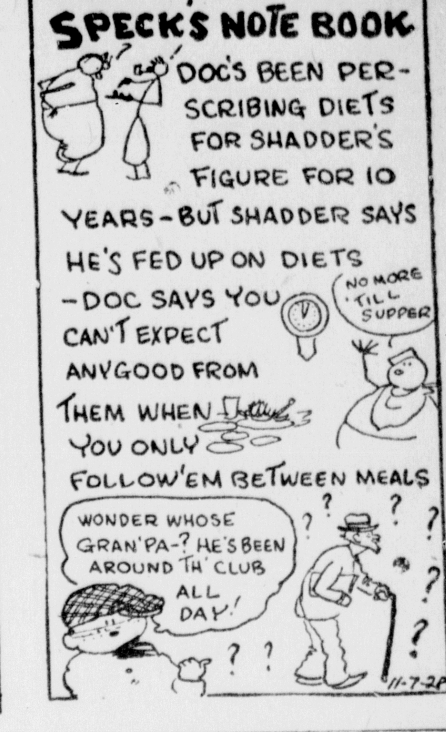 SPECK'S NOTE BOOK
DOC'S BEEN PER-
SCRIBING DIETS
FOR SHADDER'S
FIGURE FOR 10
YEARS - BUT SHADDER SAYS
HE'S FED UP ON DIETS
- DOC SAYS YOU
CAN'T EXPECT
ANYGOOD FROM
THEM WHEN
YOU ONLY
FOLLOW 'EM BETWEEN MEALS
NO MORE
'TILL
SUPPER
WONDER WHOSE
GRAN'PA-? HE'S BEEN
AROUND TH' CLUB
ALL
DAY!
? ? ? ? ? ? ?
11-7-28